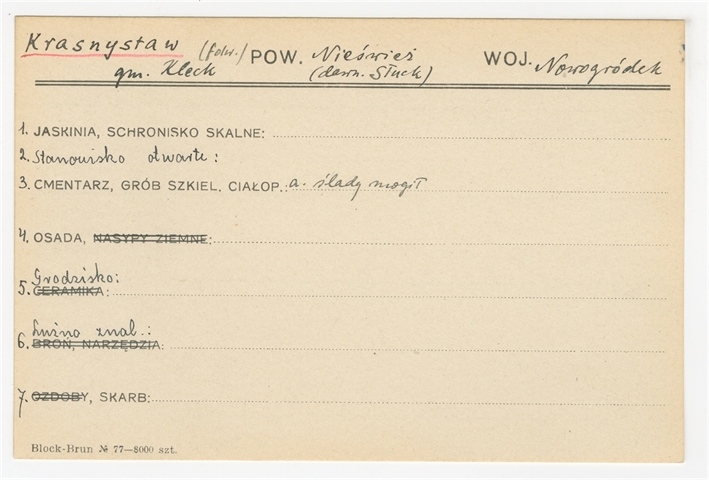 Krasnystaw (folw.) POW. Nieśwież WOJ. Nowogródek
gm. Kleck (dawn. Słuck)
1. JASKINIA, SCHRONISKO SKALNE:
2. Stanowisko otwarte:
3. CMENTARZ, GRÓB SZKIEL. CIAŁOP. a. ślady mogił
4. OSADA, NASYPY ZIEMNE:
Grodzisko:
5. CERAMIKA:
Luźno znal.:
6. BROŃ, NARZĘDZIA:
7. OZDOBY, SKARB:
Block-Brun № 77—8000 szt.